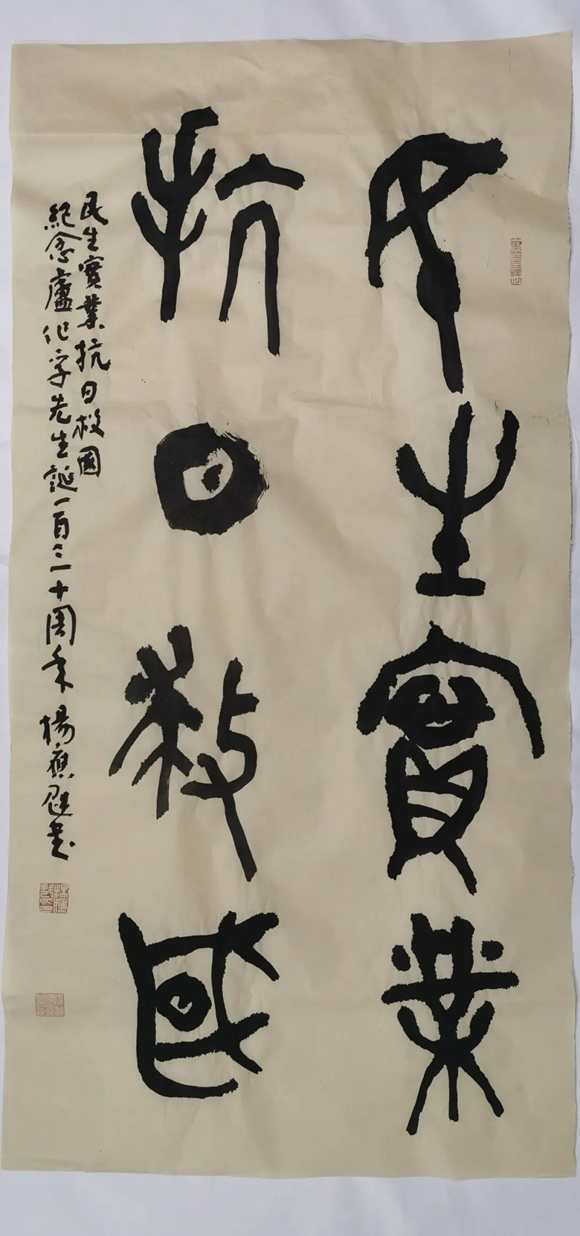 民生實業
抗日救國
民生實業抗日救國
紀念盧作孚先生誕一百三十周年 楊應 書